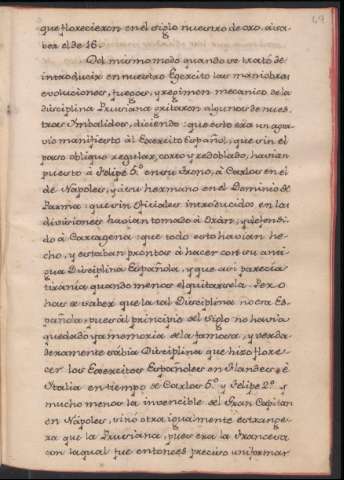 69
que florecieron en el siglo nuestro de oro, á sa-
ber el de 16.
Del mismo modo quando se trató de
introducir en nuestro Egercito las maniobras
evoluciones, fuegos, y regimen mecanico de la
disciplina Prusiana gritaron algunos de nues-
tros Imbalidos, diciendo: que esto era un agra-
vio manifiesto al Exercito Español; que sin el
paso obliquo regular, corto y redoblado, havian
puesto á Felipe 5.º en su trono, á Carlos en el
de Napoles, y á su hermano en el Dominio de
Parma: que sin Oficiales introducidos en las
divisiones havian tomado á Orán, y defendi-
do á Cartagena: que todo esto havian he-
cho, y estaban prontos á hacer con su anti-
gua Disciplina Española, y que asi parecia
tirania quando menos el quitarsela. Pero
has de saber que la tal Disciplina no era Es-
pañola, pues al principio del siglo no havia
quedado ya memoria de la famosa, y verda-
deramente sabia Disciplina que hizo flore-
cer los Exercitos Españoles en Flandes é
Italia en tiempo de Carlos 5.º y Felipe 2.º y
mucho menos la invencible del Gran Capitan
en Napoles, sinó otra igualmente estrange-
ra que la Prusiana, pues era la Francesa
con la qual fue entonces preciso uniformar